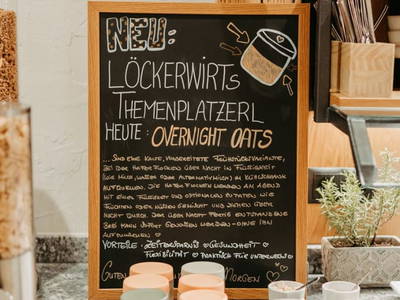 NEU:
LÖCKERWIRTS
THEMENPLATZERL
HEUTE: OVERNIGHT OATS
... SIND EINE KALTE, VORBEREITETE FRÜHSTÜCKSVARIANTE,
BEI DER HAFERFLOCKEN ÜBER NACHT IN FLÜSSIGKEIT
WIE MILCH, WASSER ODER ALTERNATIVMILCH IM KÜHLSCHRANK
AUFQUELLEN. DIE HAFERFLOCKEN WERDEN AM ABEND
MIT EINER FLÜSSIGKEIT UND OPTIONALEN ZUTATEN WIE
FRÜCHTEN ODER NÜSSEN GEMISCHT UND ZIEHEN ÜBER
NACHT DURCH. DER ÜBER NACHT FERTIG ENTSTANDENE
BREI KANN SOFORT GENOSSEN WERDEN - OHNE IHN
AUFZUKOCHEN
VORTEILE: ZEITERSPARNIS GESUNDHEIT
FLEXIBILITÄT PRAKTISCH FÜR UNTERWEGS
GUTEN MORGEN